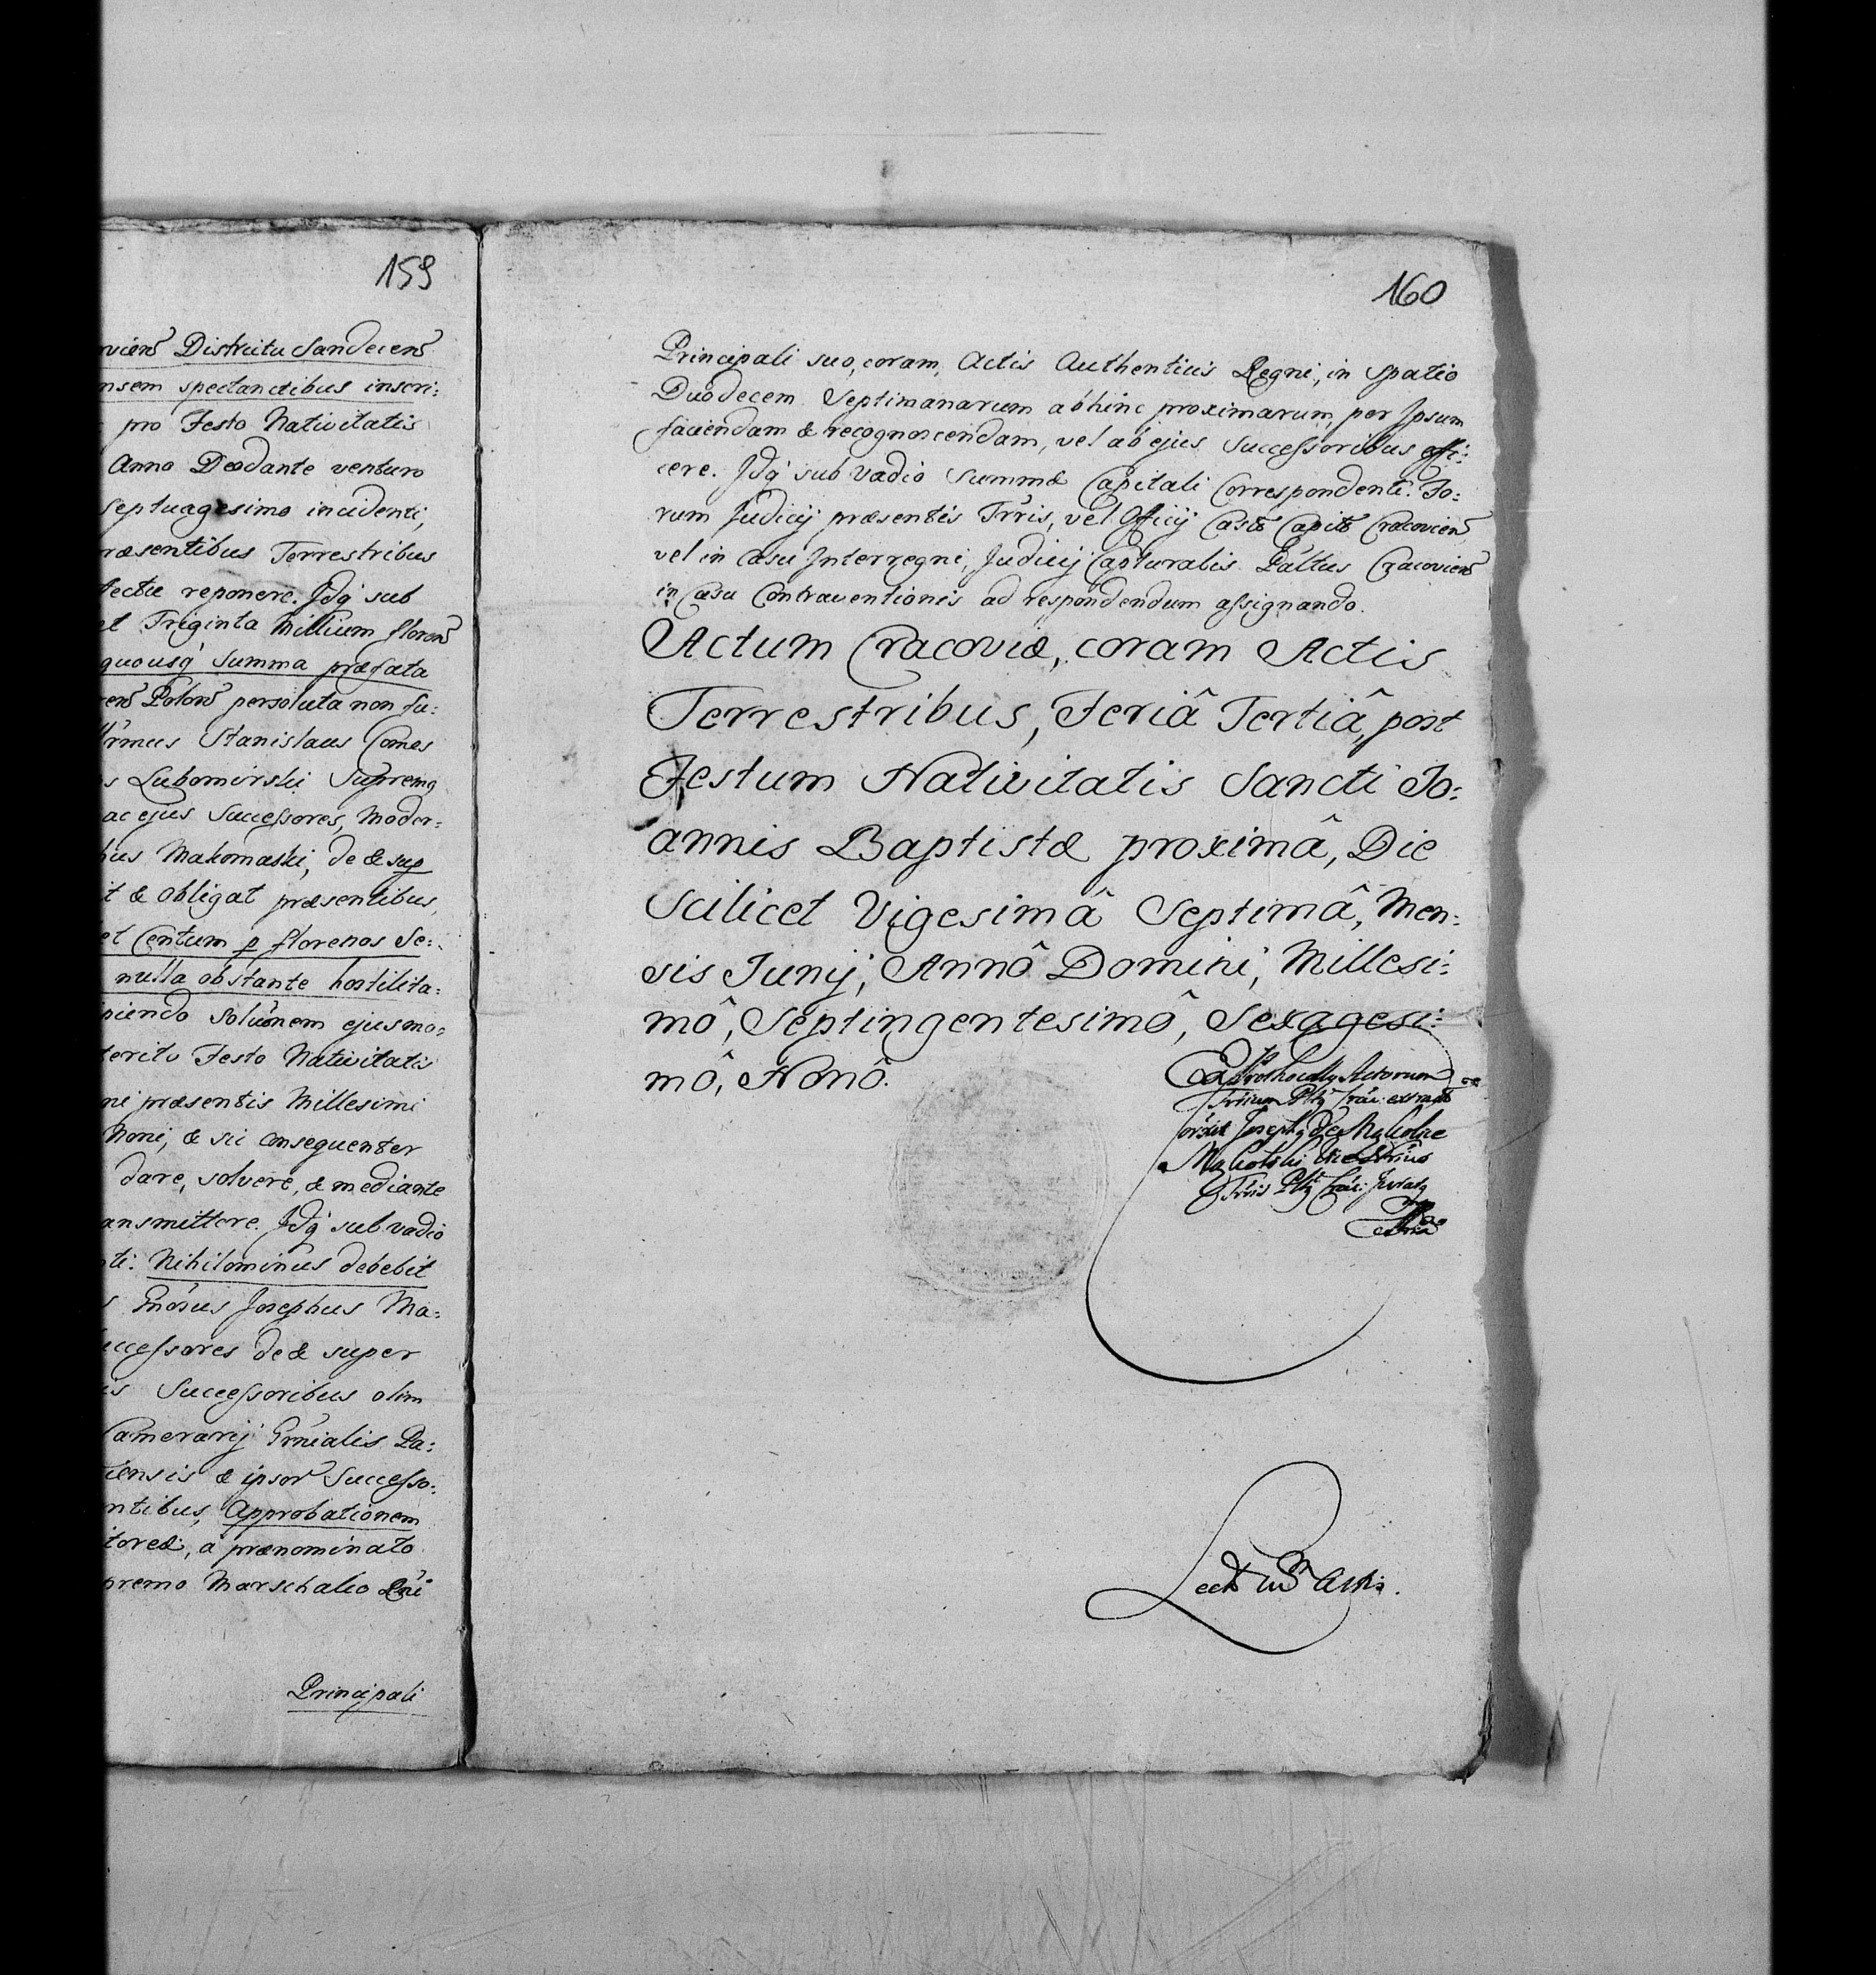 159
viens Districtu Sandecens
nsem spectanctibus inscri:
pro Festo Nativitatis
Anno Deodante venturo
Septuagesimo incidenti,
ræsentibus Terrestribus
fectu reponere. Idq sub
et Triginta Millium floren
quousq Summa præfata
ren Polon persoluta non fu:
Stanislaus Comes
s Lubomirski Supremq
ac ejus Successores, Moder:
hus Makomaski, de & sup
it & obligat præsentibus,
et Centum p florenos Se:
nulla obstante hostilita:
piendo Solunem ejusmo:
terito Festo Nativitatis
ni præsentis Millesimi
Noni, & sic consequenter
dare, solvere, & mediante
ansmittere. Idq sub vadio
nti: Nihilominus debebit
s Gnosus Josephus Ma:
uccessores de & super
is Successoribus olim
Camerarij Gnrialis Pa:
iensis & ipsor Successo:
ntibus, Approbationem
toreæ, a prænominato
premo Marschalco Dni
Principali
160
Principali suo, coram Actis Authenticis Regni, in Spatio
Duodecem Septimanarum abhinc proximarum, per Ipsum
faciendam & recognoscendam, vel ab ejus Successoribus effi:
cere. Idq sub Vadio Summæ Capitali Correspondenti. Fo:
rum Judicij præsentis Trris, vel Officij Castr Capit Cracovien
vel in Casu Interregni, Judicij Capturalis Palttus Cracovien
in Casu Contraventionis ad respondendum assignando.
Actum Cracoviæ, coram Actis
Terrestribus, Feriâ Tertiâ, post
Festum Nativitatis Sancti Jo:
annis Baptistæ proximâ, Die
Scilicet Vigesimâ Septimâ, Men:
sis Junij, Annô Domini, Millesi:
mô, Septingentesimô, Sexagesi:
mô, Nonô.
Ex Prothocollo Actorum
Trrium Pltg Crac: extradt
Josephq de
Trris Pltg Crac: Juratq
Lect cum Actis.